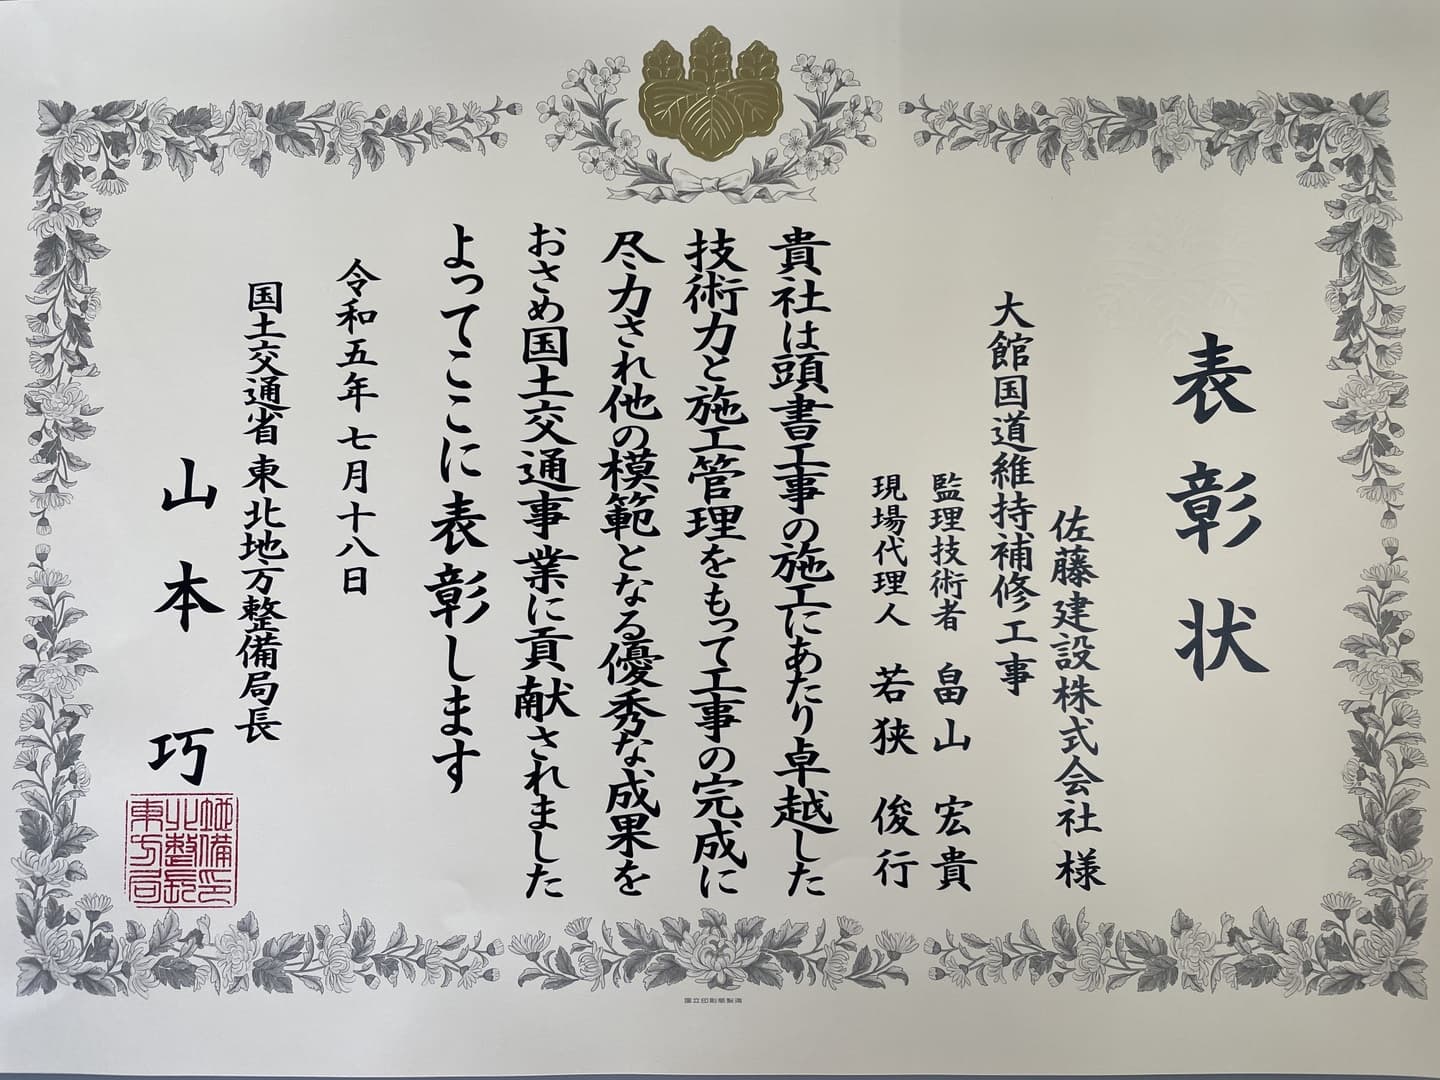 表彰状
佐藤建設株式会社様
大館国道維持補修工事
監理技術者 畠山 宏貴
現場代理人 若狭 俊行
貴社は頭書工事の施工にあたり卓越した
技術力と施工管理をもって工事の完成に
尽力され他の模範となる優秀な成果を
おさめ国土交通事業に貢献されました
よってここに表彰します
令和五年七月十八日
国土交通省東北地方整備局長
山本 巧
国立印刷局製造